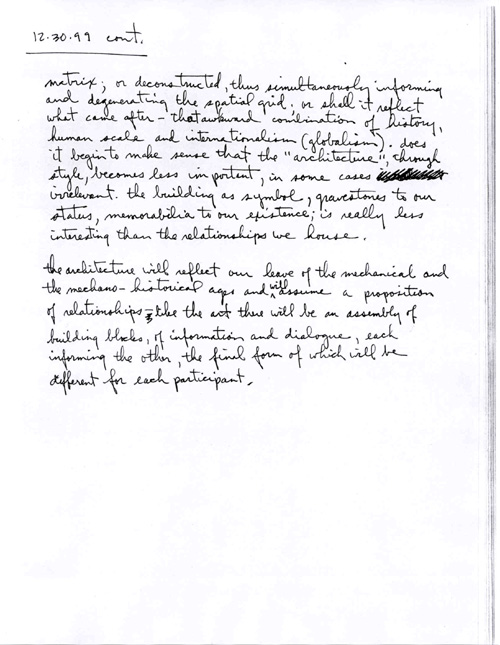 12.30.99 cont.
matrix; or deconstructed, thus simultaneously informing
and degenerating the spatial grid. or shall it reflect
what came after - that awkward combination of history,
human scale and internationalism (globalism). does
it begin to make sense that the "architecture", through
style, becomes less important, in some cases
irrelevant. the building as symbol, gravestones to our
status, memorabilia to our existence; is really less
interesting than the relationships we house.
the architecture will reflect our leave of the mechanical and
the mechano-historical ages and will assume a proposition
of relationships - like the art there will be an assembly of
building blocks, of information and dialogue, each
informing the other, the final form of which will be
different for each participant.